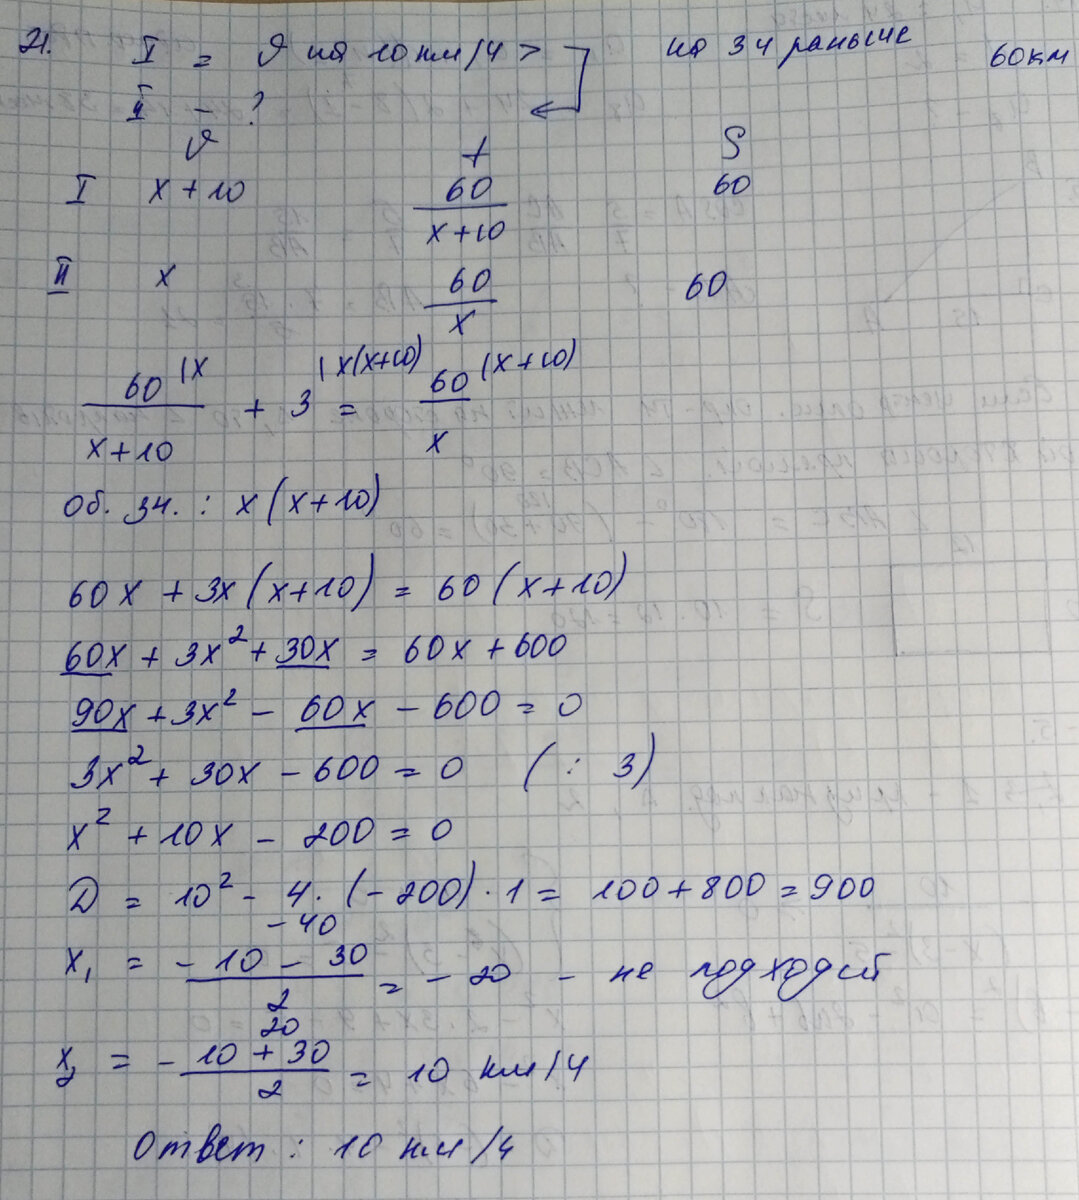 21. I = υ на 10 км/ч > на 3ч раньше 60км
II – ?
υ t S
I x + 10 60/(x+10) 60
II x 60/x 60
60/(x+10) |x + 3 |x(x+10) = 60/x (x+10)
Об. зн. : x (x+10)
60x + 3x (x+10) = 60 (x+10)
60x + 3x² + 30x = 60x + 600
90x + 3x² – 60x – 600 = 0
3x² + 30x – 600 = 0 ( : 3)
x² + 10x – 200 = 0
D = 10² – 4 · (–200) · 1 = 100 + 800 = 900
–40
x₁ = (–10 – 30)/2 = – 20 – не подходит
20
x₂ = (–10 + 30)/2 = 10 км/ч
Ответ : 10 км/ч